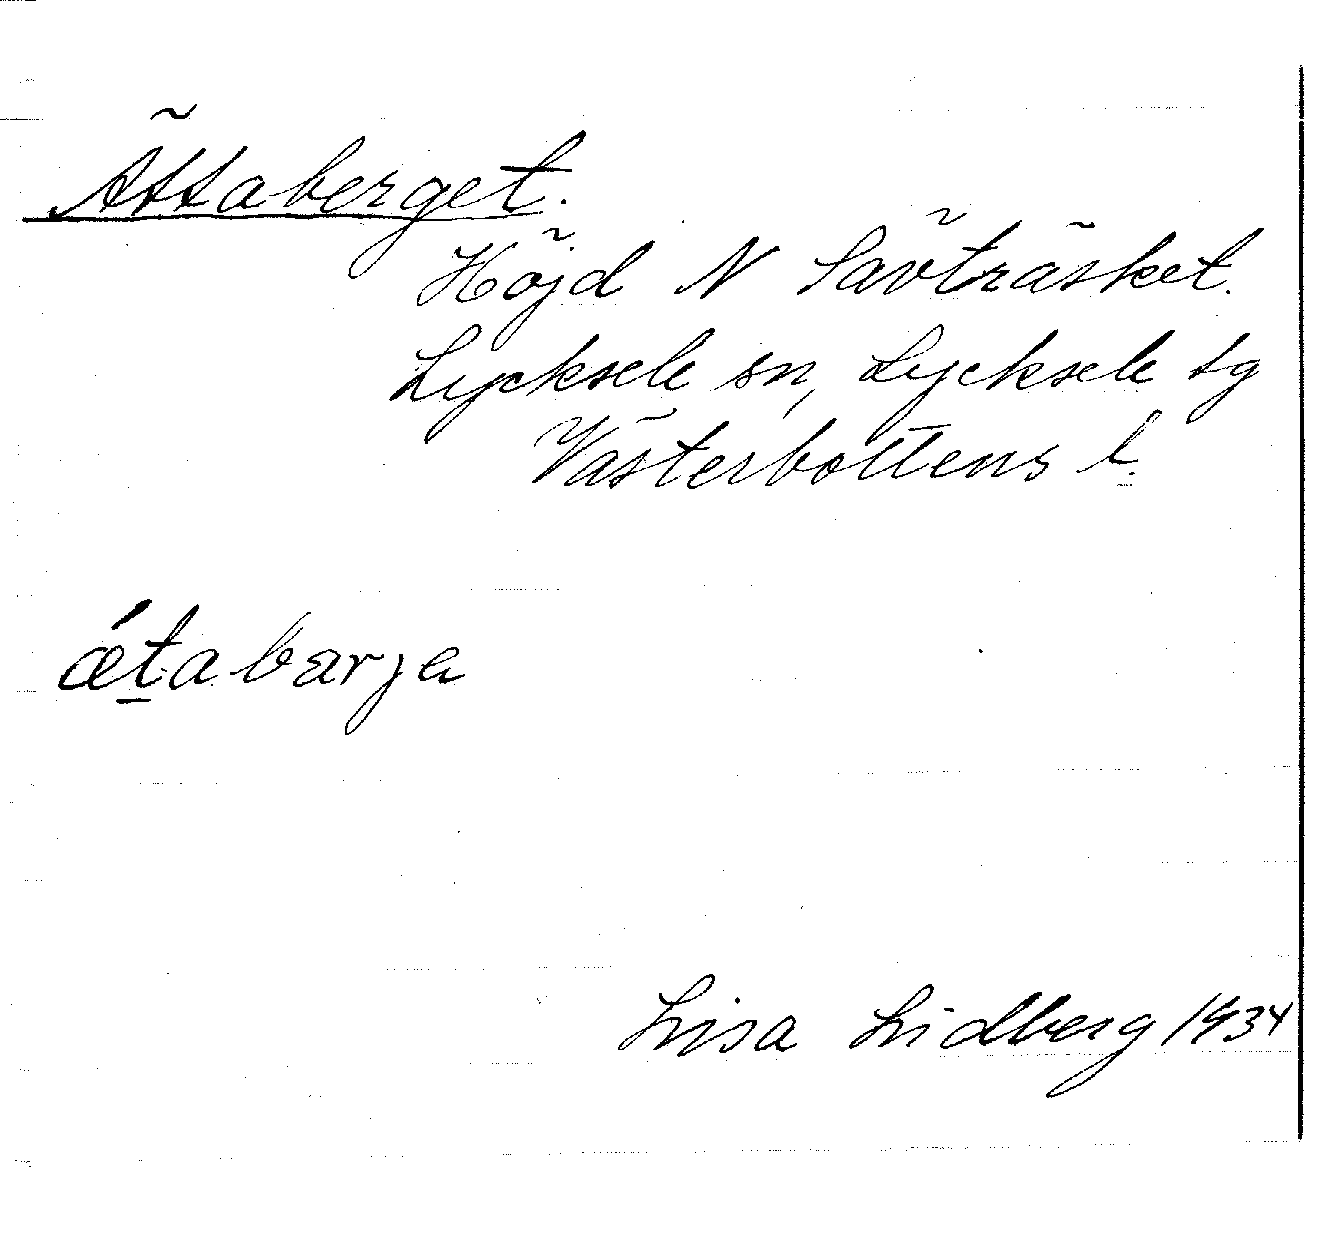 Ättaberget.
Höjd N Sävträsket.
Lycksele sn, Lycksele tg
Västerbottens l.
ǽt̲abarje
Lisa Lidberg 1934